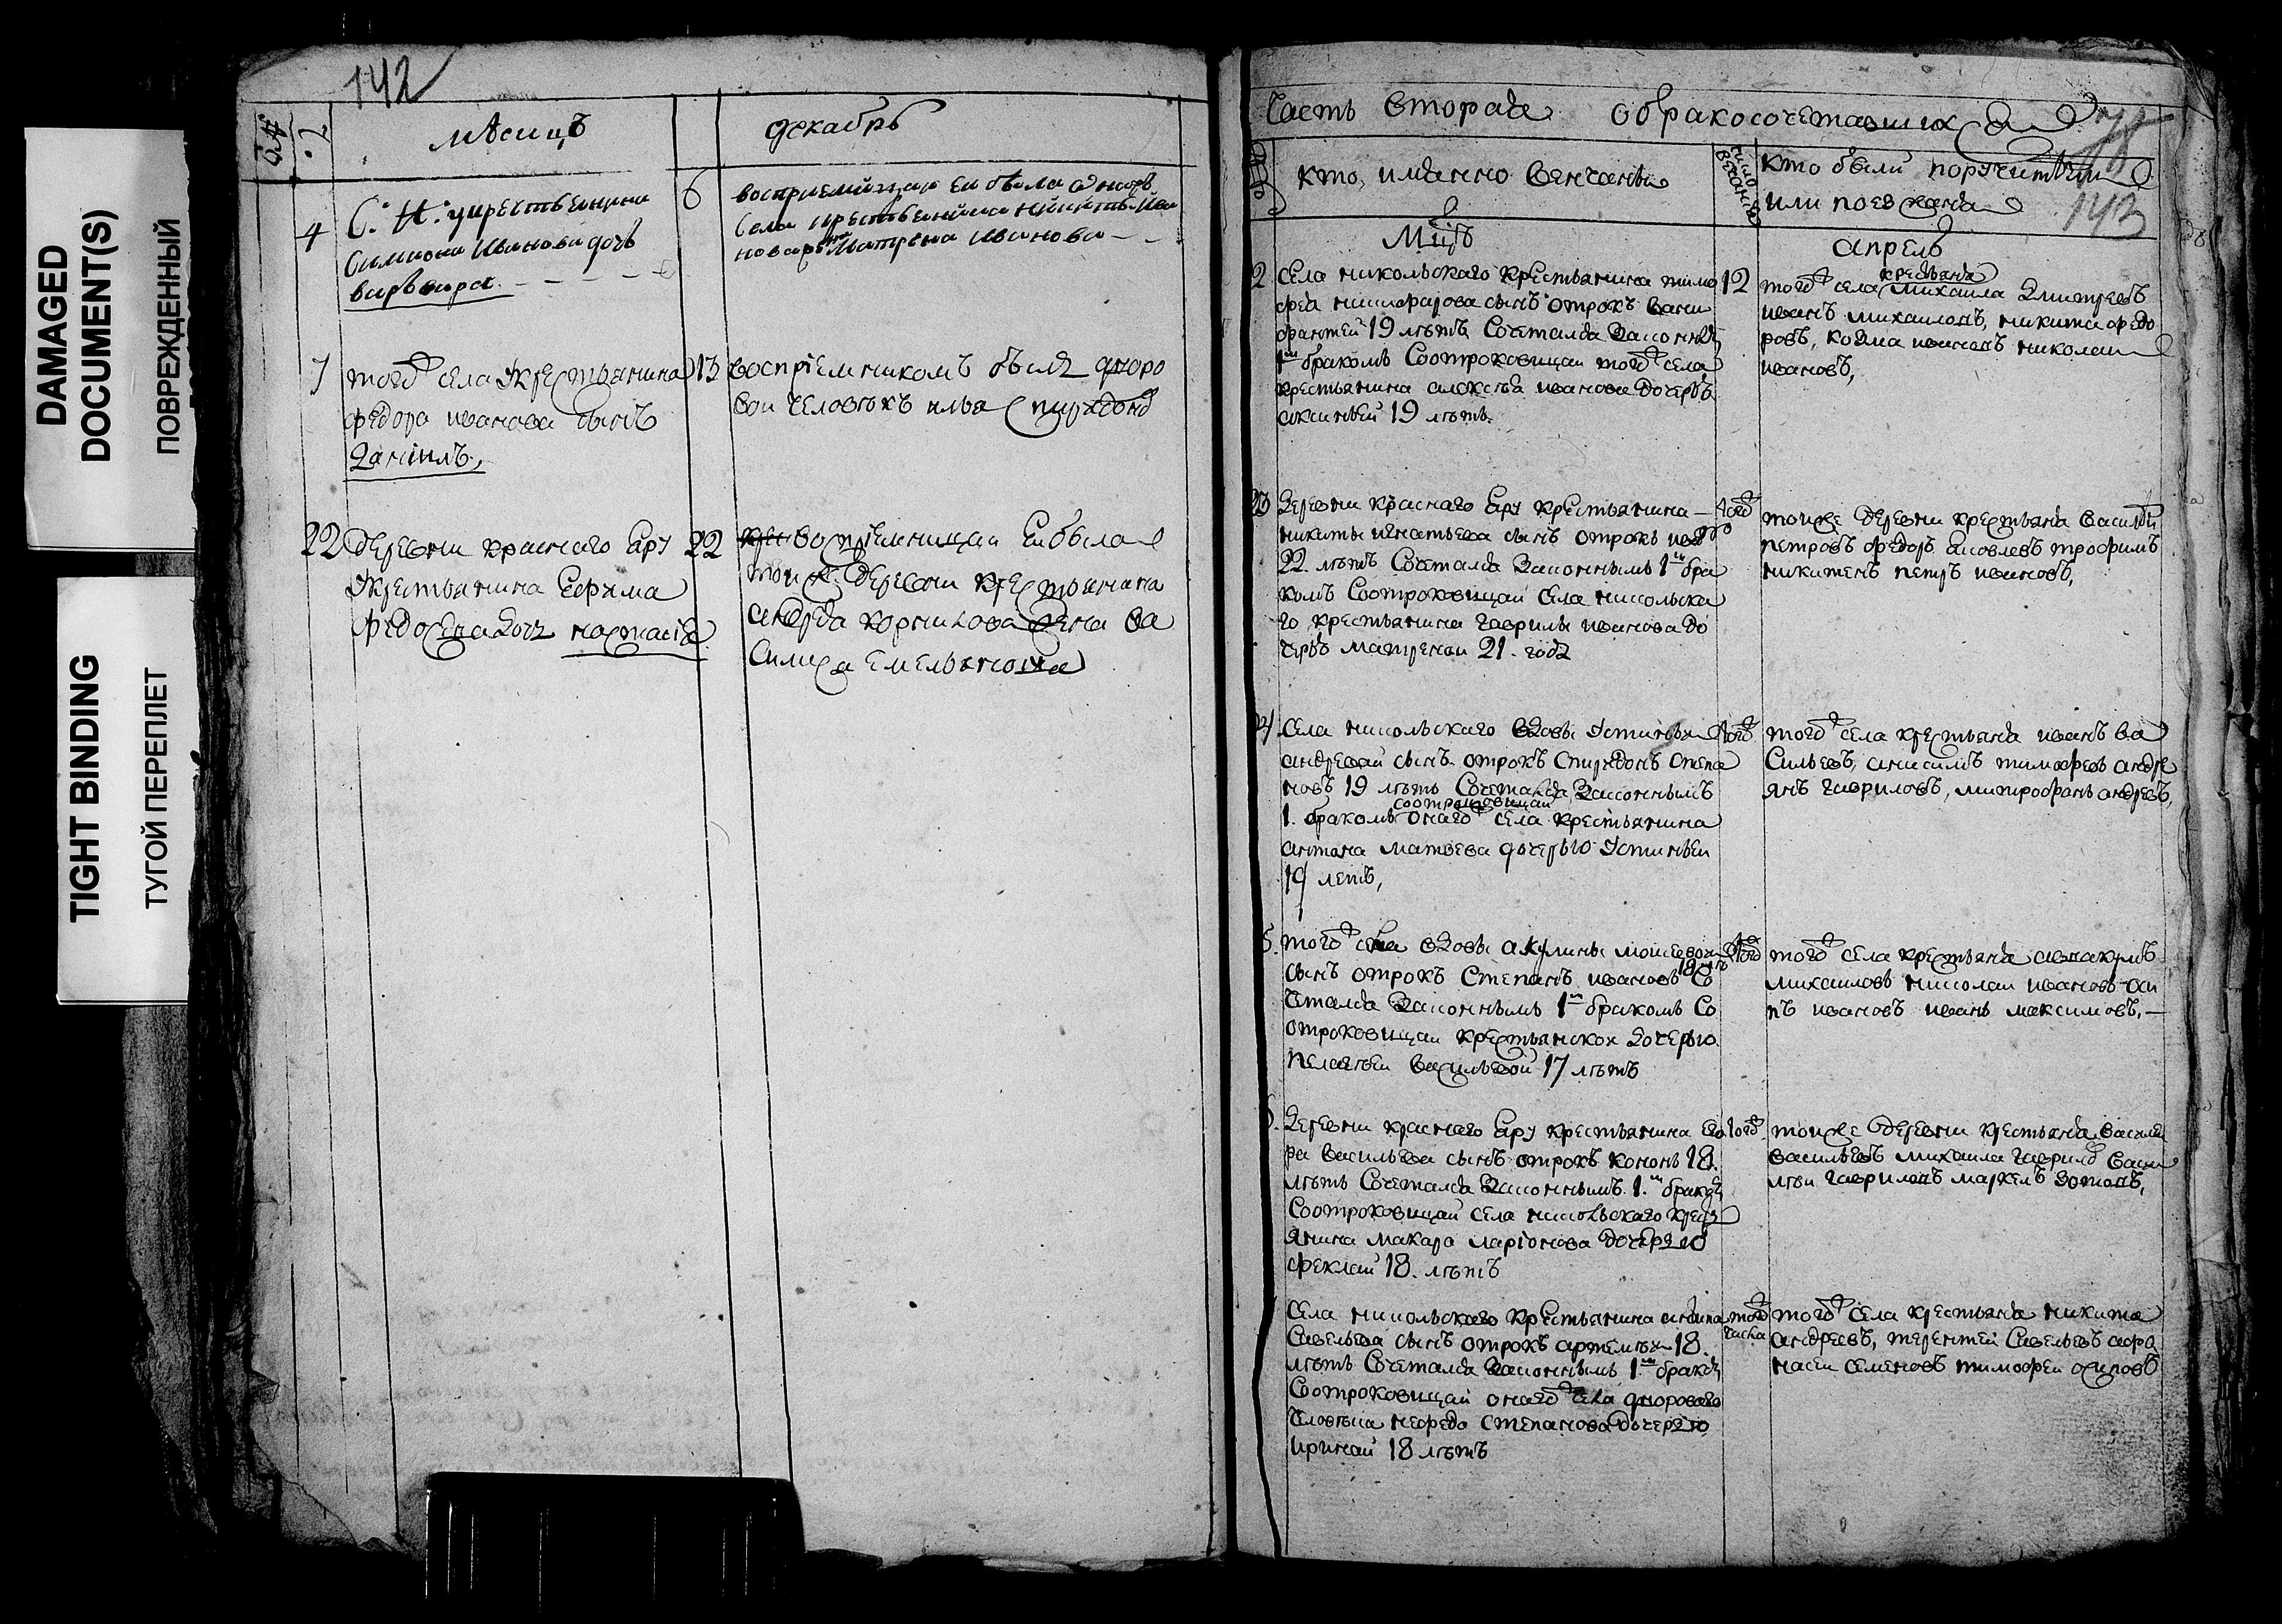 DAMAGED
DOCUMENT(S)
ПОВРЕЖДЕННЫЙ
TIGHT BINDING
ТУГОЙ ПЕРЕПЛЕТ
142
мѣсяцъ
декабрь
4
С: Н: укрестьянина
Симиона Иванова дочь
варвара
6
восприемницею еи была онагожъ
села крестьянина Никиты Ива
нова жена Матрена Иванова
7
того села Крестьянина
федора иванова сынъ
Данiилъ,
13
воспрiемникомъ былъ дворо
вои человѣкъ илья спиридоновъ
22
деревни краснаго Яру
Крестьянина Ефима
федосеева дочь настасiя
22
воспрiемницеи Еи была
тоиже деревни крестьянина
андрея корнилова жена ва
силиса емельянова
Часть вторая о бракосочетавшихся
78
кто имянно венчаны
число венчания
кто были поручители
или поезжаня
143
Мцъ
апрель
2
села никольскаго крестьянина тимо
фея никифорова сынъ отрокъ вани
фантей 19 лѣтъ Сочетался Законнымъ
1м бракомъ Соотроковицеи того села
крестьянина алексѣя иванова дочерью
аксиньей 19 лѣтъ.
12
того села крестьяня михаила Дмитревъ
иванъ михаиловъ, никита федо
ровъ, козма ивановъ николаи
ивановъ,
3
Деревни краснаго Яру крестьянина
никиты игнатьева сынъ отрокъ
22. лѣтъ Сочетался Законнымъ 1м бра
комъ Соотроковицеи села никольска
го крестьянина гаврилы иванова до
черью матреной 21. годъ
тогож
тоиже деревни крестьяня василеи
петровъ федоръ яковлевъ трофимъ
никитенъ петръ ивановъ,
4
Села никольскаго вдовы Устиньи
андревои сынъ отрокъ спиридонъ степа
новъ 19 лѣтъ Сочетался Законнымъ
1. бракомъ соотроковицеи онаго села крестьянина
антона матвева дочерью Устиньеи
19 летъ,
тогож
того села крестьяня иванъ ва
сильевъ, анисимъ тимофеев андре
янъ гавриловъ, митрофанъ андревъ,
5.
того села вдовы акулины моисевои
сынъ отрокъ Степанъ ивановъ 18 лѣтъ Со
четался Законнымъ 1м бракомъ Со
отроковицеи крестьянскои дочерью
пелагеи васильевои 17 лѣтъ
тогож
того села крестьяня аввакумъ
михаиловъ николаи ивановъ оси
пъ ивановъ иванъ максимовъ.
6.
Деревни краснаго Яру крестьянина его
ра васильева сынъ отрокъ кононъ 18.
лѣтъ Сочетался Законнымъ 1.м бракомъ
Соотроковицеи села никольскаго крест
янина макара ларiонова дочерью
феклаи 18. лѣтъ
тогож
тоиже деревни крестьяня василеи
васильевъ михаила гаврилов васи
леи гавриловъ маркелъ Зотовъ,
села никольскаго крестьянина
Савельева сынъ отрокъ артемеи 18.
лѣтъ Сочетался Законнымъ 1м бракомъ
Соотроковицеи онаго села двороваго
человѣка нефеда степанова дочерью
ириной 18 лѣтъ
того числа
того села крестьяня никита
андреевъ, терентей Савельевъ афа
насеи семеновъ тимофеи осиповъ